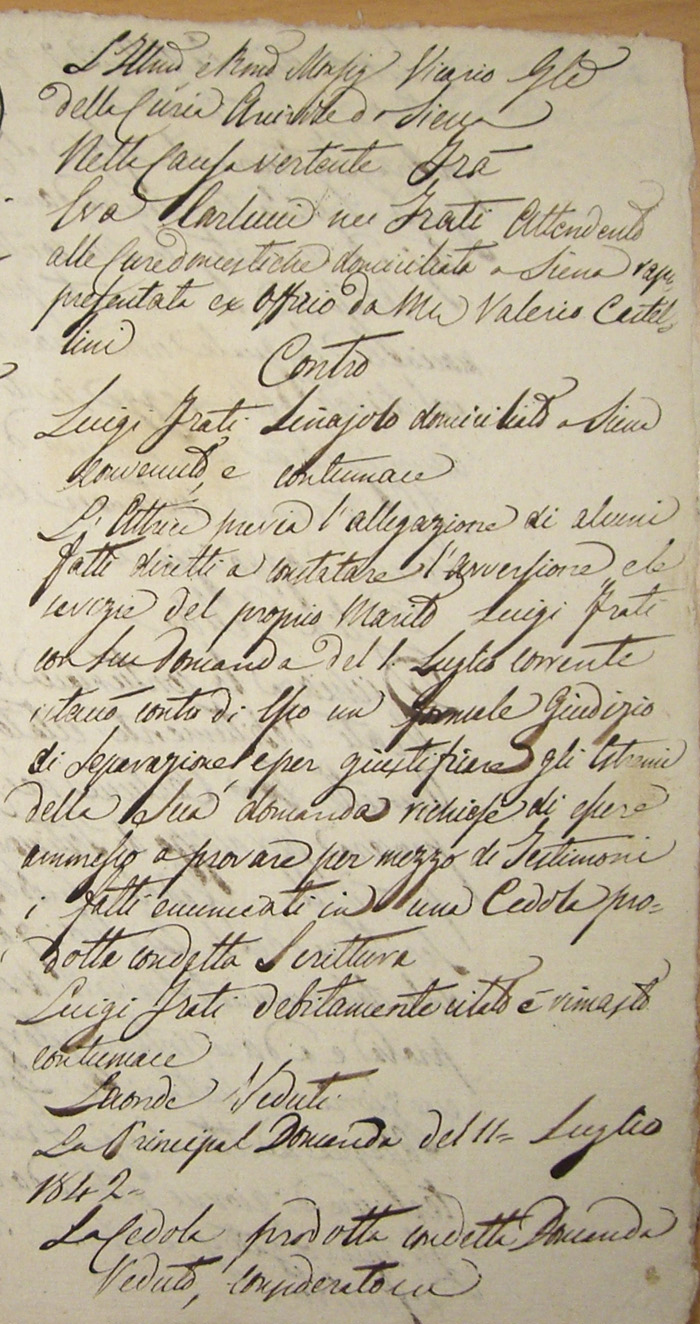 L'Illmo e Rmo Monsig Vicario Gle
della Curia Arcivile di Siena
Nella Causa vertente Frà
Eva Carlucci nei Frati Attendente
alle Cure domestiche domiciliata a Siena rap=
presentata ex Officio da Mr Valerio Castel=
lini
Contro
Luigi Frati Linajolo domiciliato a Siena
convenuto, e contumace
L'Attrice previa l'allegazione di alcuni
fatti diretti a constatare l'avversione, e le
sevizie del proprio Marito Luigi Frati
con sua Domanda del 1. Luglio corrente
intentò contro di Esso un formale Giudizio
di Separazione, e per giustificare gli Estremi
della Sua domanda richiese di essere
ammessa a provare per mezzo di Testimoni
i fatti enunciati in una Cedola pro=
dotta con detta Scrittura
Luigi Frati debitamente citato è rimasto
contumace
Laonde Veduti
La Principal Domanda del 11= Luglio
1842=
La Cedola prodotta con detta Domanda
Veduto, considerato